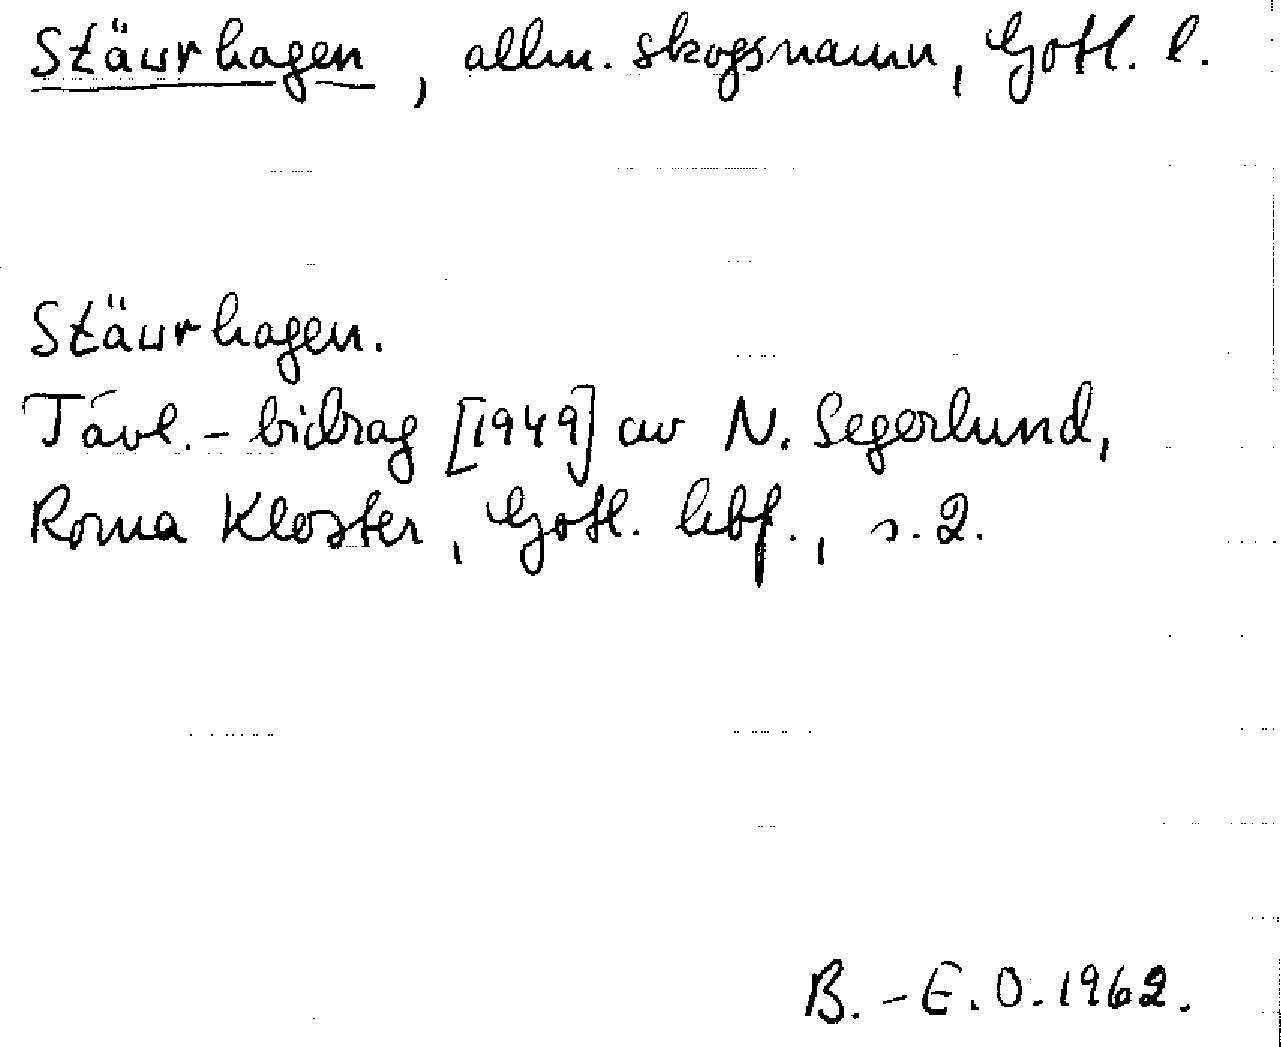 Stäurhagen, allm. skogsnamn, Gotl. l.
Stäurhagen.
Tävl.-bidrag [1949] av N. Segerlund,
Roma Kloster, Gotl. hbf., s. 2.
B.-E.O. 1962.